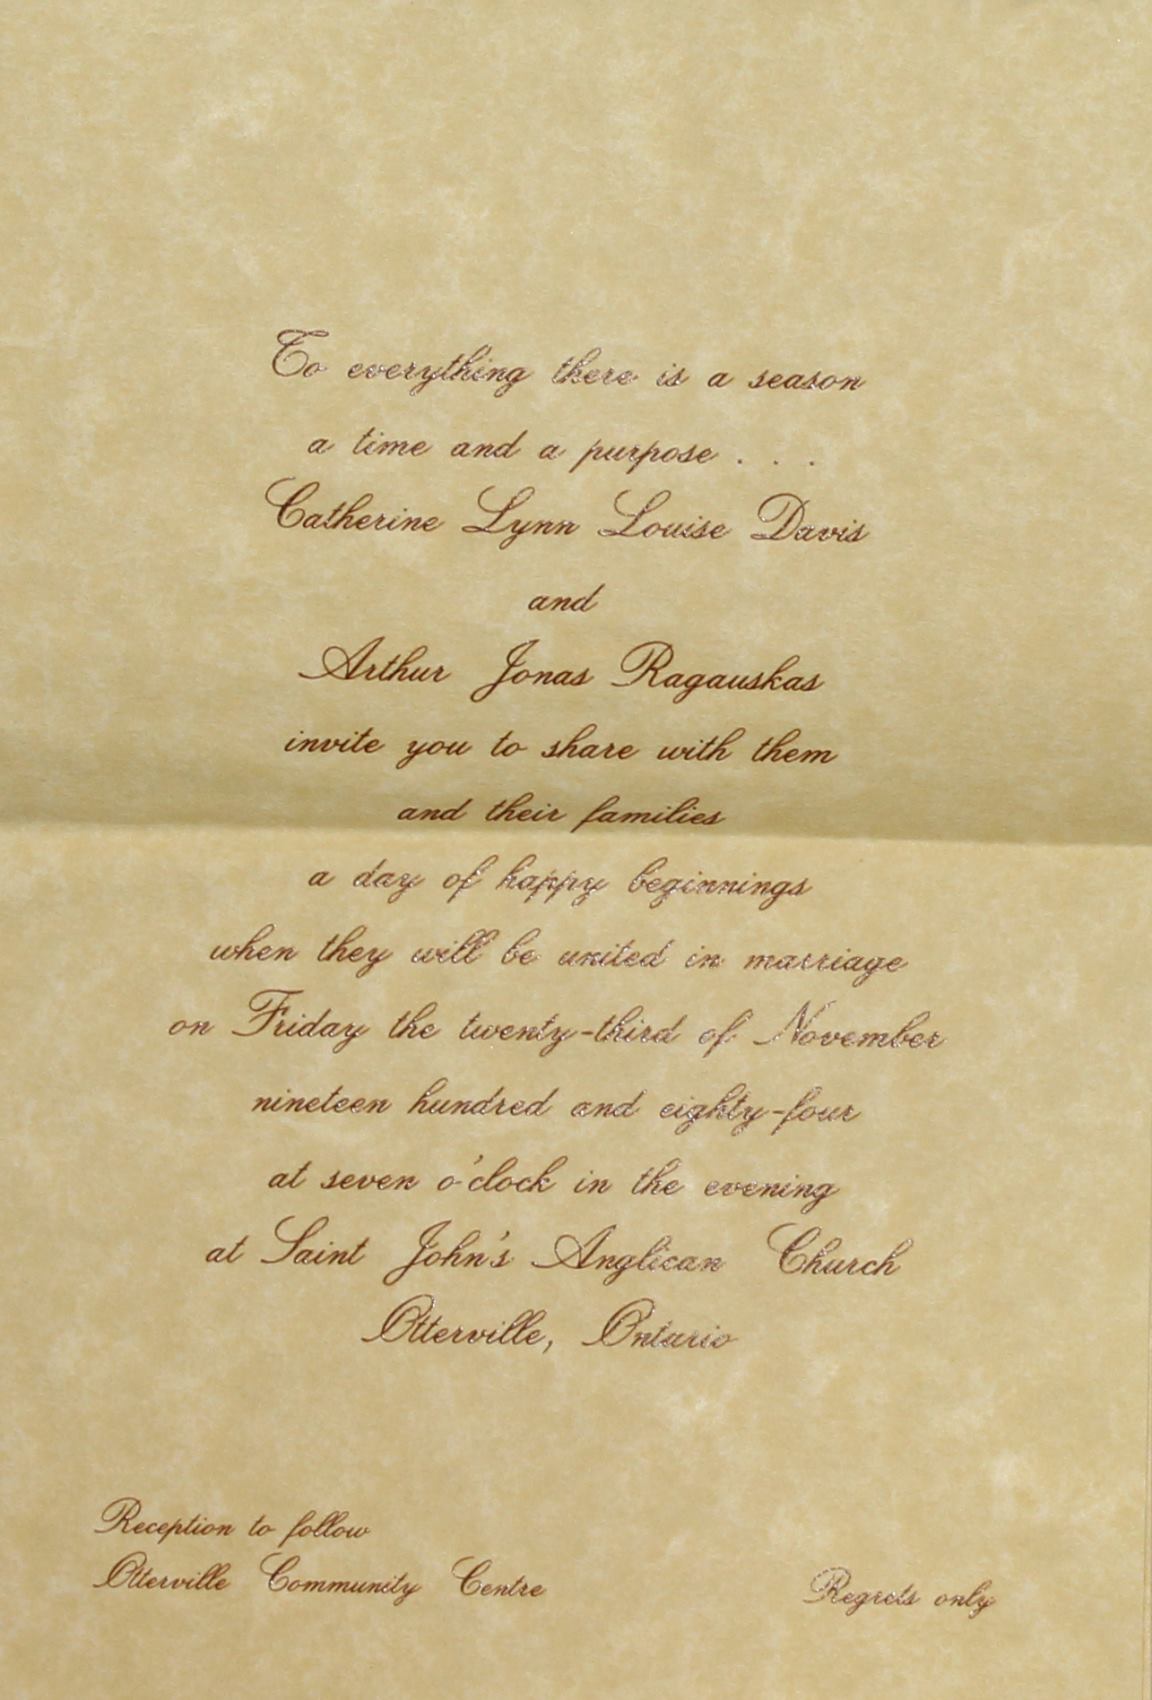 To everything there is a season
a time and a purpose . . .
Catherine Lynn Louise Davis
and
Arthur Jonas Ragauskas
invite you to share with them
and their families
a day of happy beginnings
when they will be united in marriage
on Friday the twenty-third of November
nineteen hundred and eighty-four
at seven o'clock in the evening
at Saint John's Anglican Church
Otterville, Ontario
Reception to follow
Otterville Community Centre
Regrets only